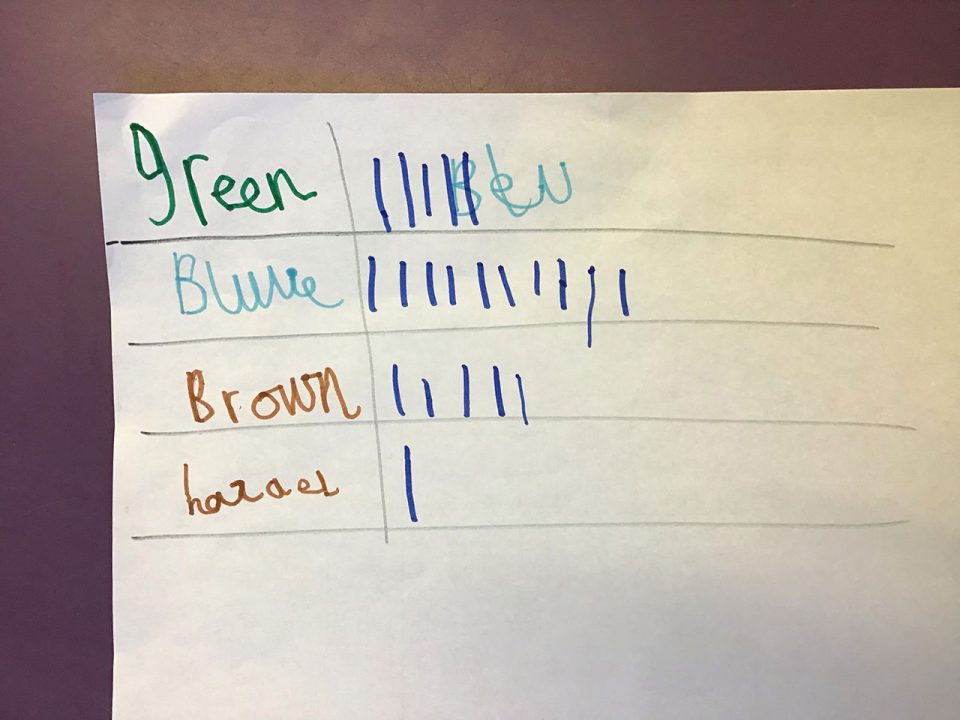 green Blu
Bluue
Brown
hazael